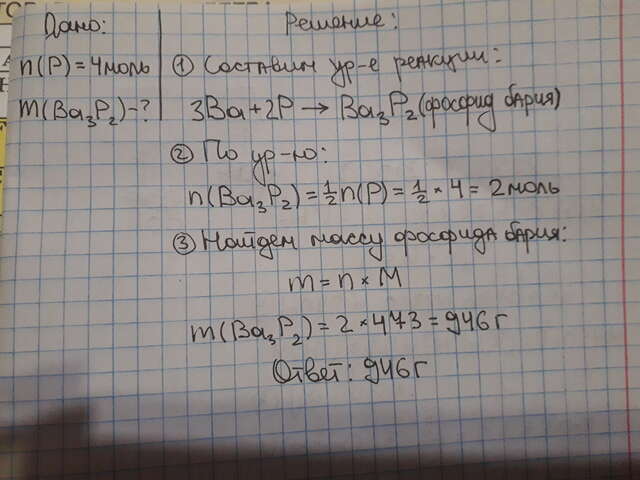 Дано:
n(P) = 4моль
m(Ba₃P₂)-?
Решение:
① Составим ур-е реакции:
3Ba+2P → Ba₃P₂(фосфид бария)
② По ур-ю:
n(Ba₃P₂) = ½n(P) = ½ * 4 = 2моль
③ Найдем массу фосфида бария:
m = n × M
m(Ba₃P₂) = 2 * 473 = 946г
Ответ: 946г